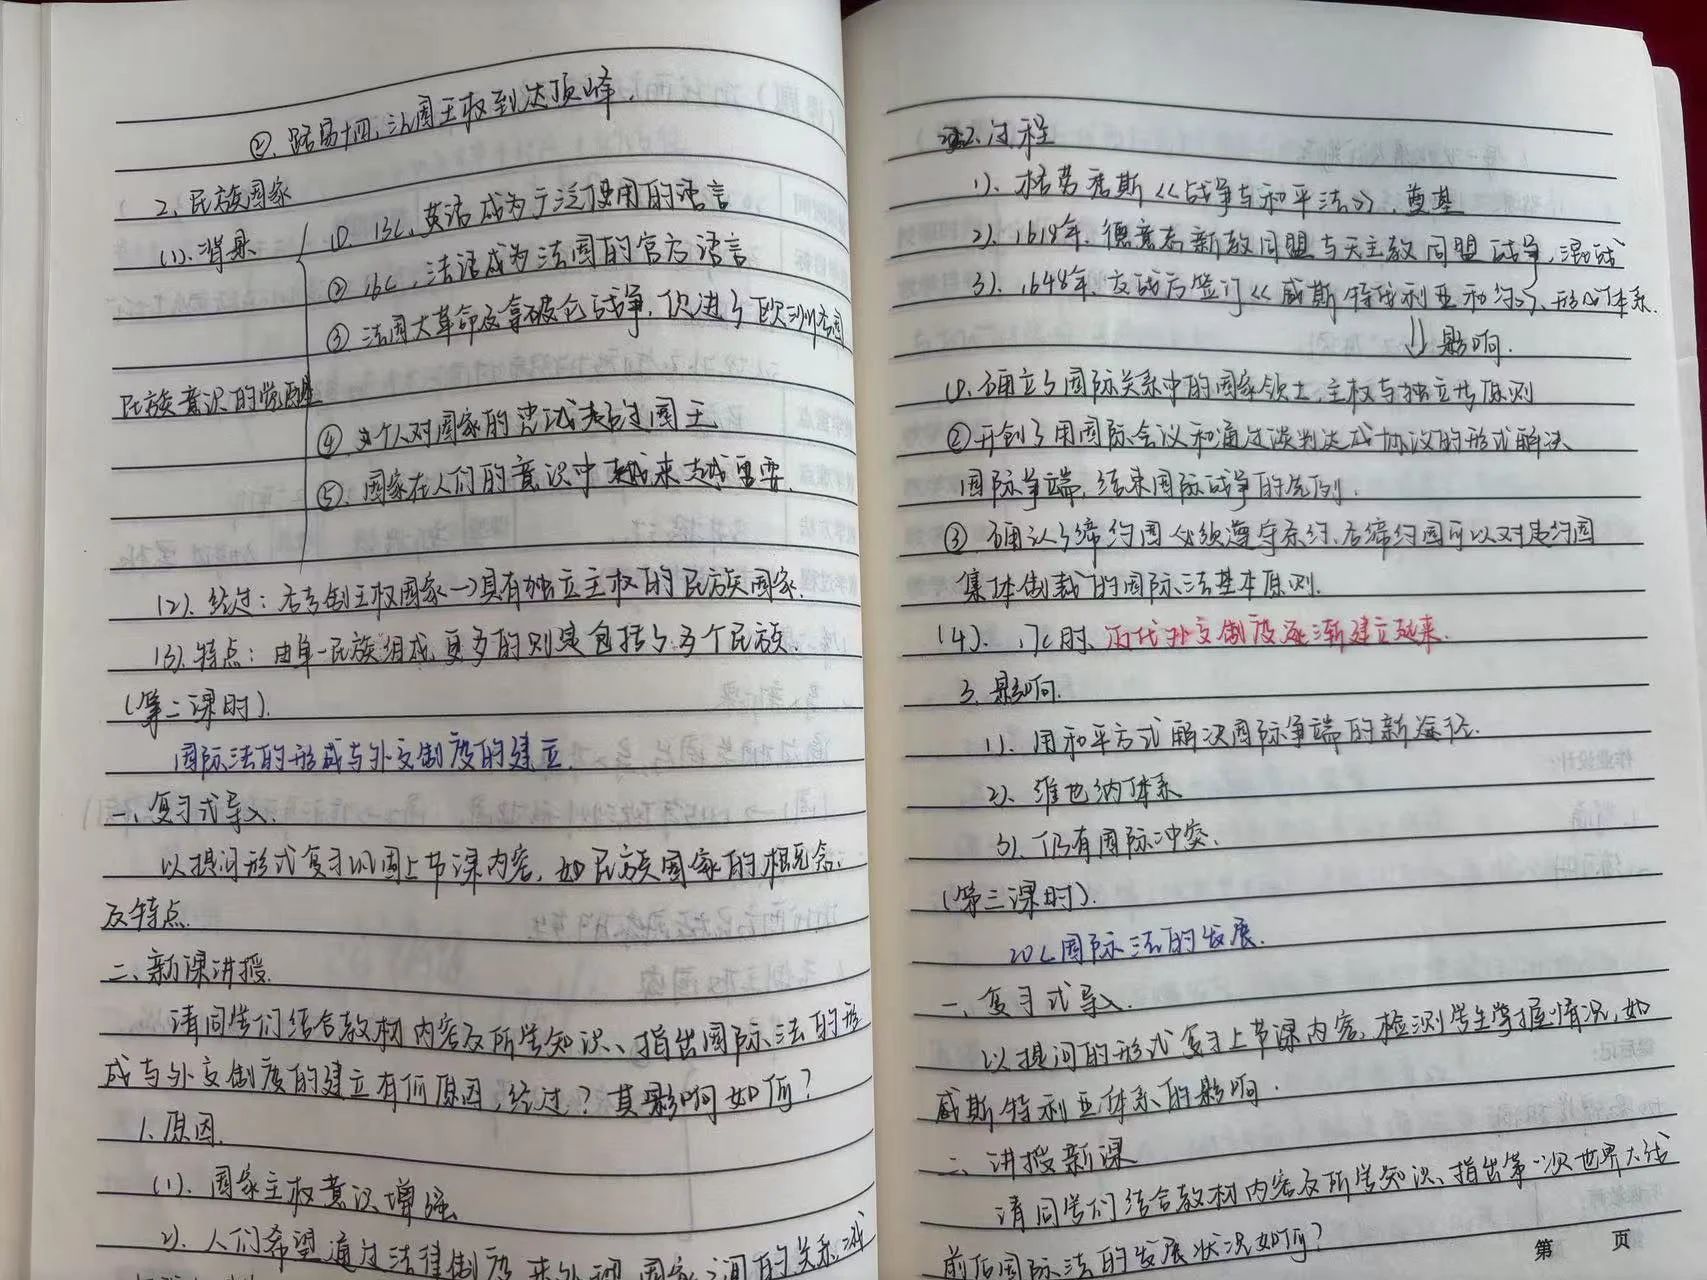 ②. 路易十四, 法国王权到达顶峰.
2. 民族国家
(1). 背景
①. 13C, 英语成为广泛使用的语言
② 16C, 法语成为法国的官方语言
③ 法国大革命及拿破仑战争, 促进了欧洲各国
民族意识的觉醒
④ 个人对国家的忠诚超过国王
⑤. 国家在人们的意识中越来越重要.
(2). 经过: 君主专制主权国家→具有独立主权的民族国家.
(3). 特点: 由单一民族组成, 更多的则是包括了多个民族.
(第二课时).
国际法的形成与外交制度的建立.
一. 复习式导入.
以提问形式复习巩固上节课内容, 如民族国家的概念
及特点.
二. 新课讲授.
请同学们结合教材内容及所学知识、指出国际法的形
成与外交制度的建立有何原因, 经过? 其影响如何?
1. 原因.
(1). 国家主权意识增强
2). 人们希望通过法律制度来处理国家之间的关系, 减
2. 过程
1). 格劳秀斯《战争与和平法》, 奠基
2). 1618年. 德意志新教同盟与天主教同盟战争, 混战
3). 1648年. 交战方签订《威斯特伐利亚和约》, 形成体系.
↓影响.
①. 确立了国际关系中的国家领土, 主权与独立等原则
② 开创了用国际会议和通过谈判达成协议的形式解决
国际争端, 结束国际战争的先例.
③. 确认了缔约国必须遵守条约, 各缔约国可以对违约国
集体制裁的国际法基本原则.
(4). 17C时, 近代外交制度逐渐建立起来.
3. 影响.
1). 用和平方式解决国际争端的新途径.
2). 维也纳体系
3). 仍有国际冲突.
(第三课时).
20C国际法的发展.
一. 复习式导入.
以提问的形式复习上节课内容, 检测学生掌握情况, 如
威斯特利亚体系的影响.
二. 讲授新课
请同学们结合教材内容及所学知识、指出第一次世界大战
前后国际法的发展状况如何?
第 页